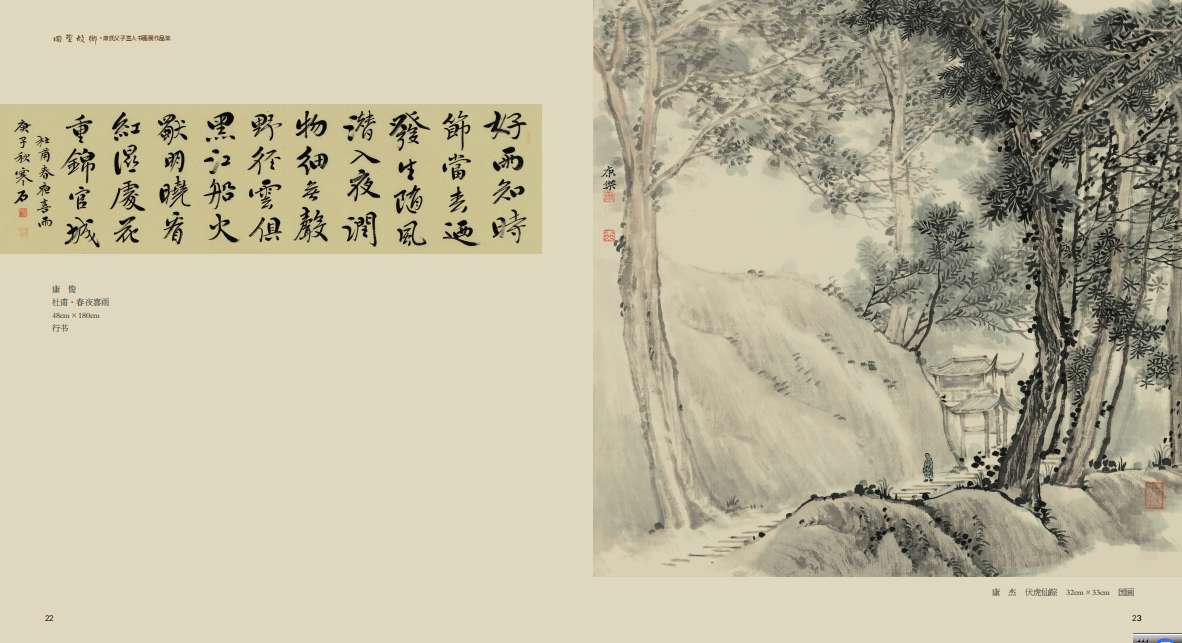 回望故鄉·康氏父子三人书画展作品集
好雨知時
節當春迺
發生随風
潛入夜潤
物細无聲
野徑雲俱
黑江船火
獨明曉看
紅濕處花
重錦官城
杜甫春夜喜雨
庚子秋寒石
康　俊
杜甫·春夜喜雨
48cm×180cm
行书
22
康傑
康　杰　伏虎仙踪　32cm×33cm　国画
23